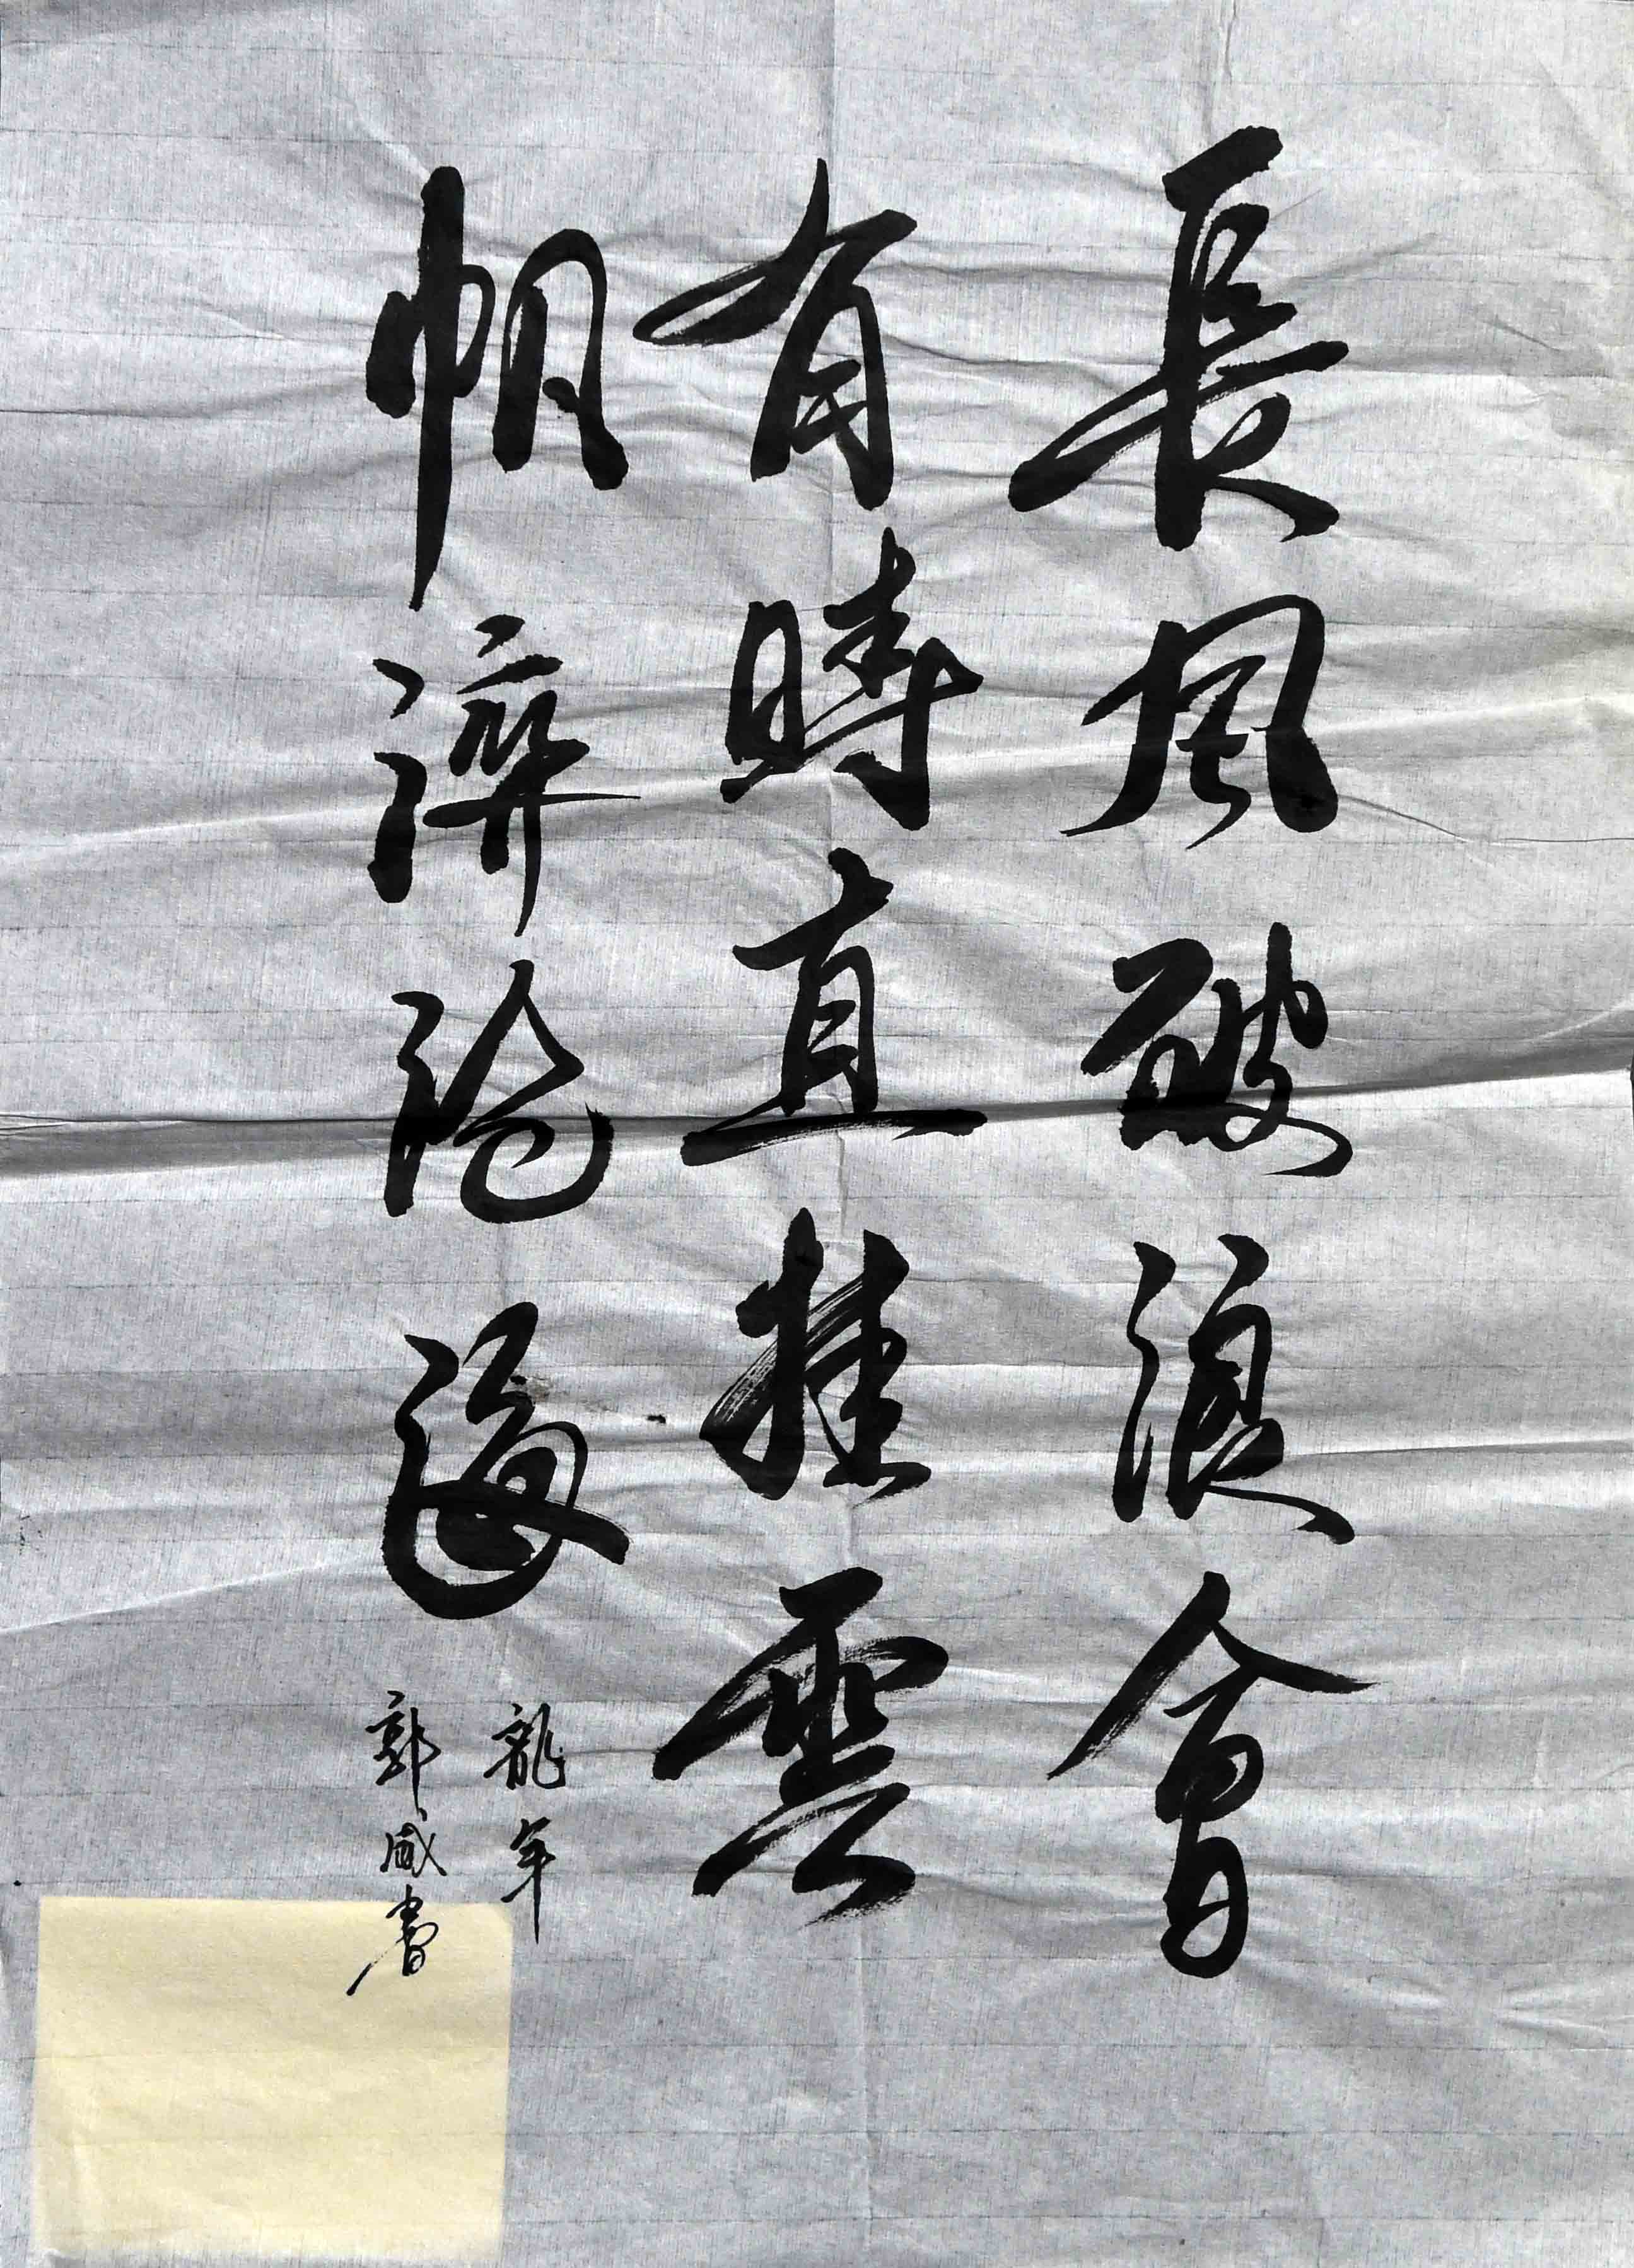 長風破浪會
有時直挂雲
帆濟滄海
龍年
郭威書